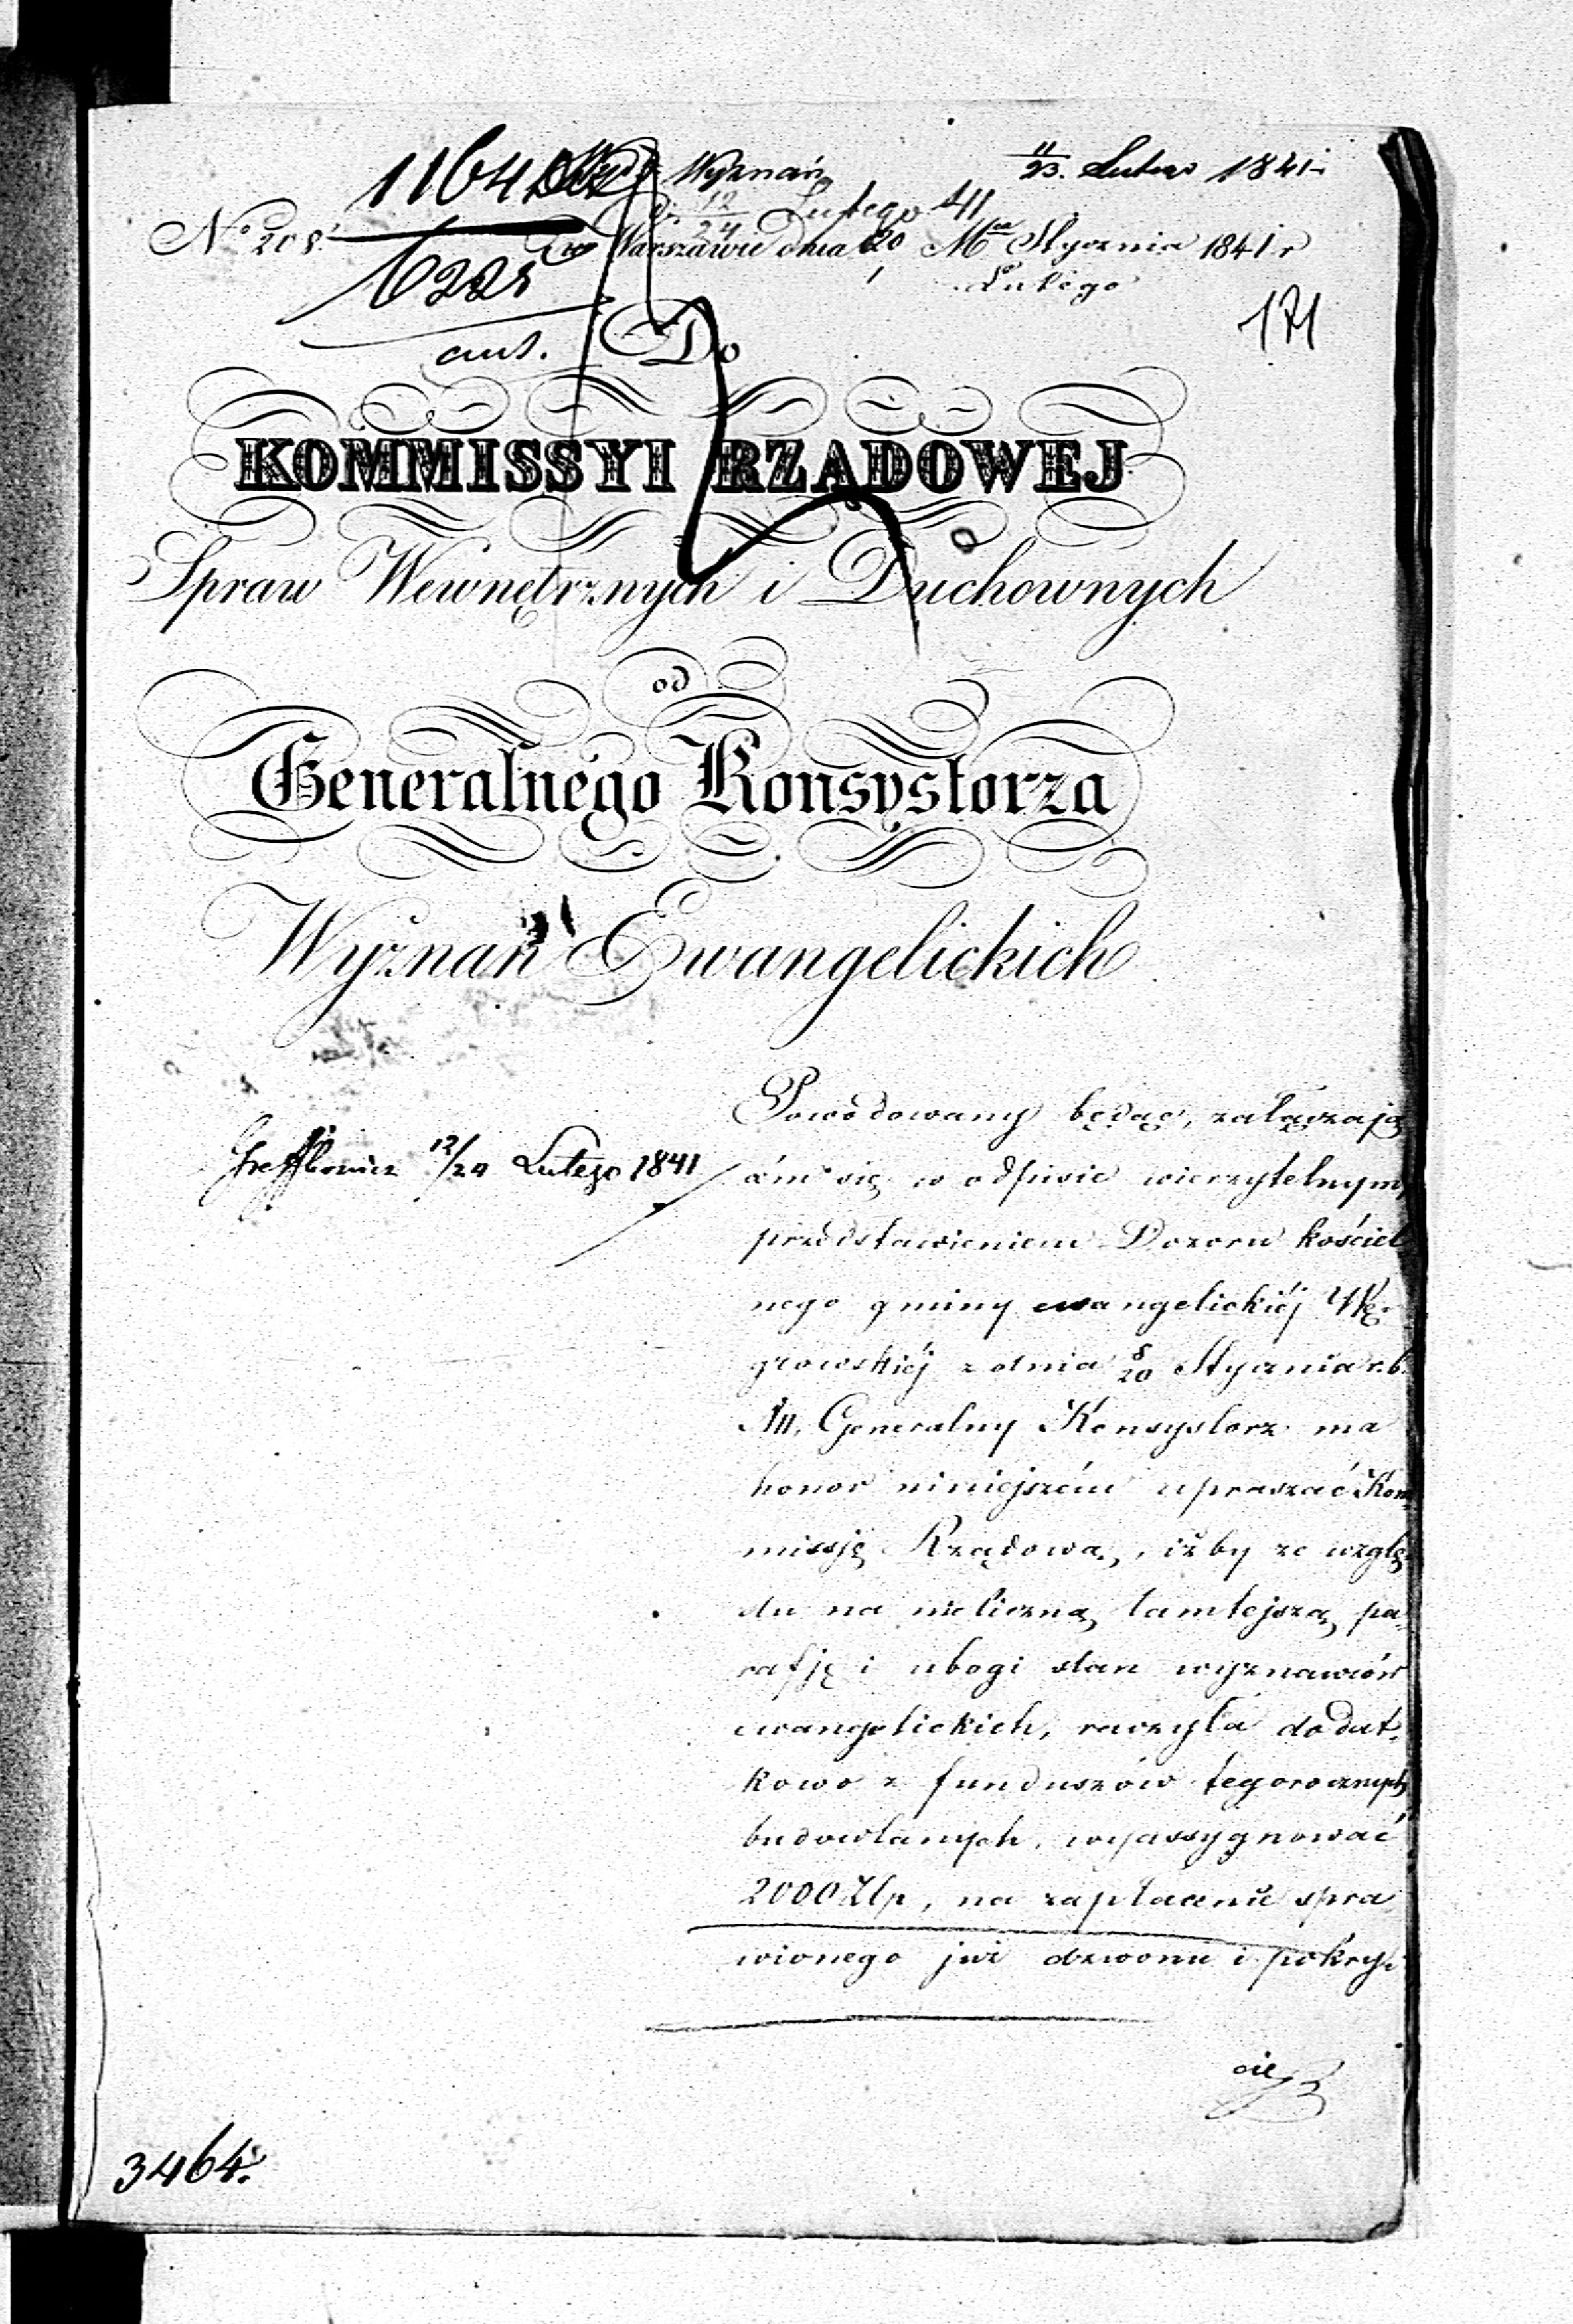 1164
Wyznań
11/23. Lutego 1841
d. 12/24 Lutego 41
No 208.
w Warszawie dnia 20 Mca Stycznia 1841 r
1 Lutego
171
ant.
Do
KOMMISSYI RZĄDOWEJ
Spraw Wewnętrznych i Duchownych
od
Generalnego Konsystorza
Wyznań Ewangelickich
12/24 Lutego 1841
Powodowany będąc, załączają
cém się w odpisie wierzytelnym,
przedstawieniem Dozoru kościel
nego gminy ewangelickiéj Wę-
growskiéj z dnia 8/20 Stycznia r.b.
Generalny Konsystorz ma
honor niniejszém upraszać Kom
missję Rządową, iżby ze wzglę
du na nieliczną tamtejszą pa-
rafję i ubogi stan wyznawców
ewangelickich, raczyła dodat-
kowo z funduszów tegorocznych
budowlanych, wyassygnować
2000 Złp, na zapłacenie spra
wionego już dzwonu i pokry-
cie
3464.